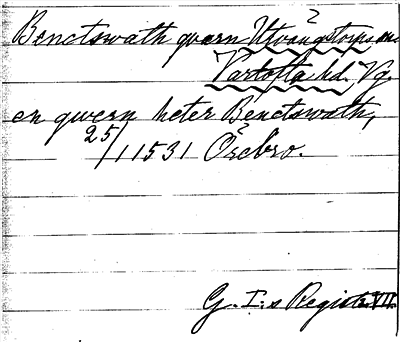 Benctswath qvarn Utvängstorps sn
Vartofta hd. Vg.
en qwern heter Benctswath,
25/1 1531 Örebro.
G. I:s Registr. VII.